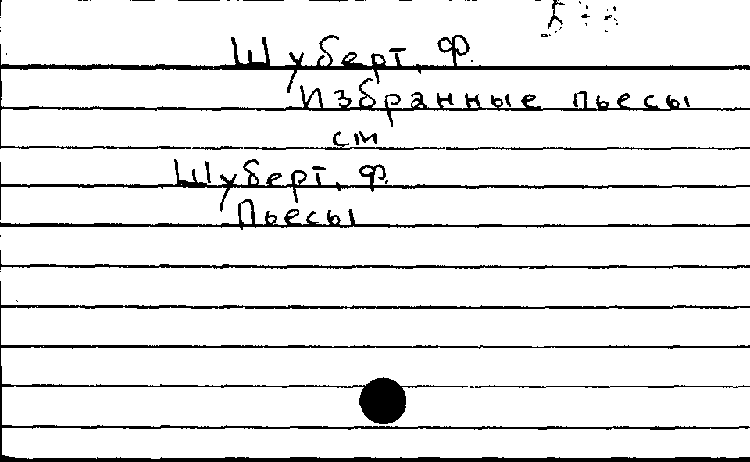 Шуберт, Ф.
Избранные пьесы
см
Шуберт, Ф.
Пьесы